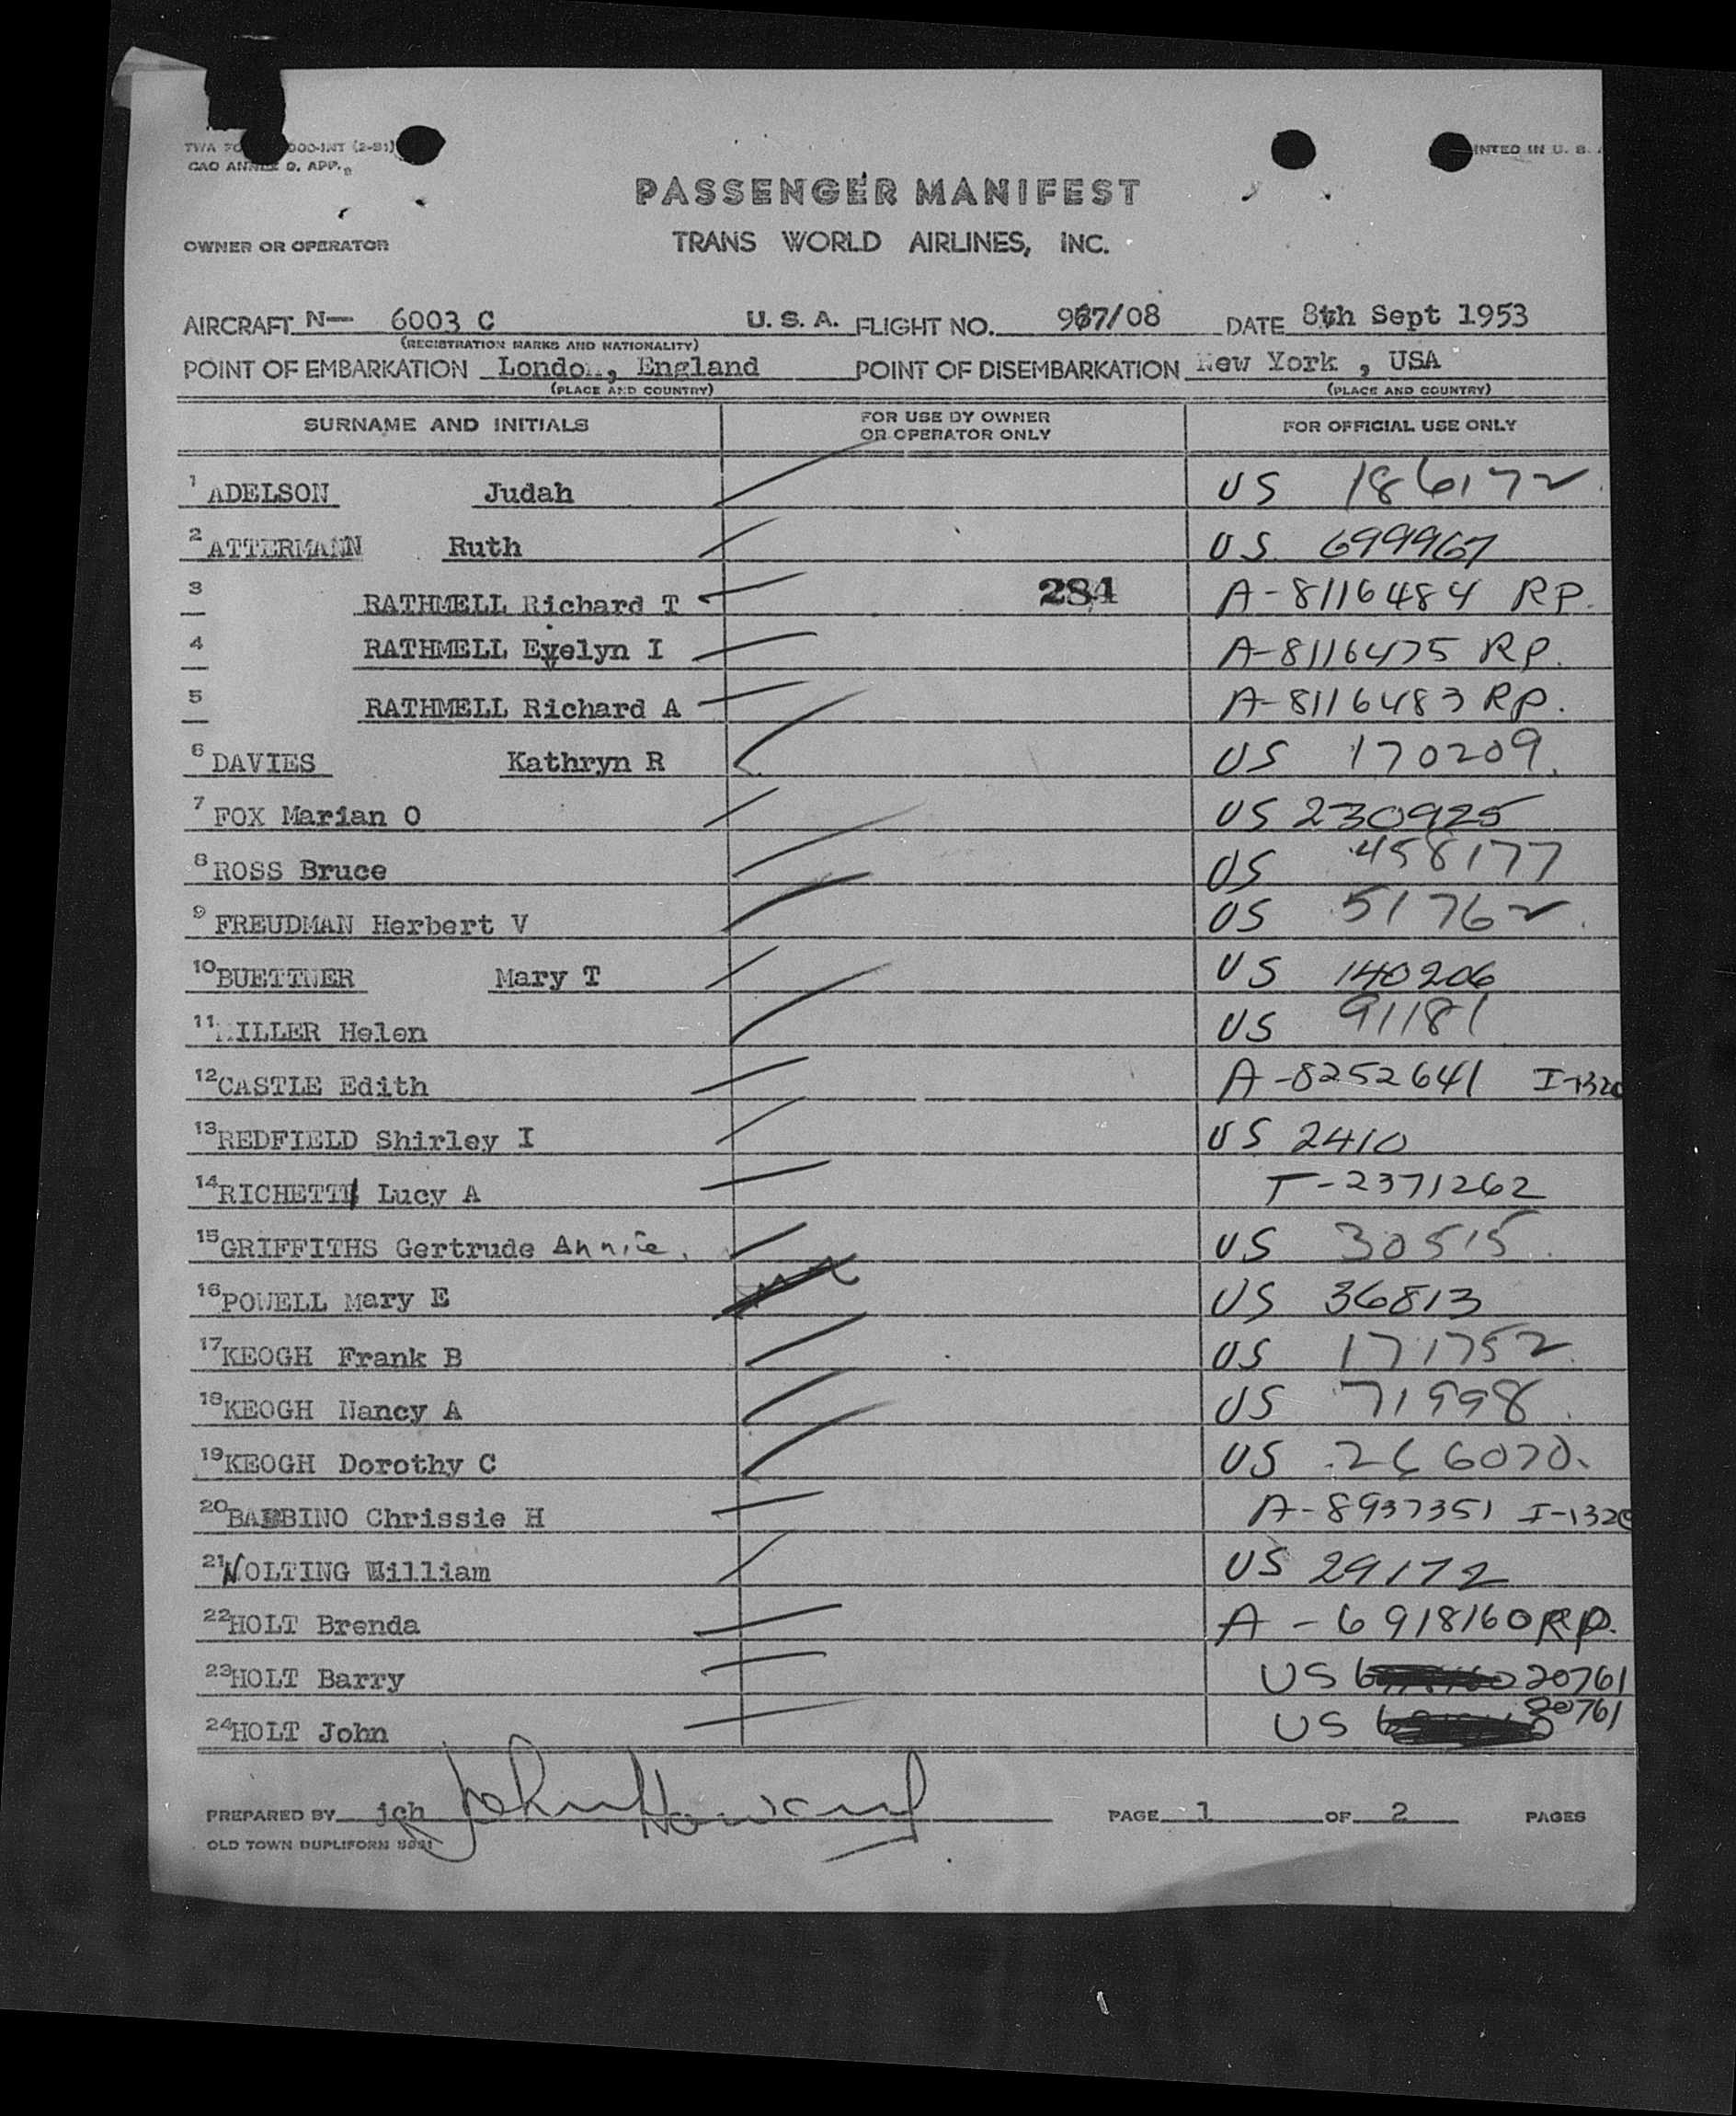 TWA FO 000-INT (2-51)
CAO ANNEX 9. APP.
INTED IN U. S.
PASSENGER MANIFEST
OWNER OR OPERATOR
TRANS WORLD AIRLINES, INC.
AIRCRAFT N— 6003 C U. S. A. FLIGHT NO. 967/08 DATE 8th Sept 1953
(REGISTRATION MARKS AND NATIONALITY)
POINT OF EMBARKATION London, England POINT OF DISEMBARKATION New York , USA
(PLACE AND COUNTRY) (PLACE AND COUNTRY)
SURNAME AND INITIALS FOR USE BY OWNER OR OPERATOR ONLY FOR OFFICIAL USE ONLY
1 ADELSON Judah US 186172
2 ATTERMANN Ruth US 699967
3 RATHMELL Richard T 284 A-8116484 RP.
4 RATHMELL Evelyn I A-8116475 RP.
5 RATHMELL Richard A A-8116483 RP.
6 DAVIES Kathryn R US 170209
7 FOX Marian O US 230925
8 ROSS Bruce US 458177
9 FREUDMAN Herbert V US 51762
10 BUETTNER Mary T US 140206
11 ILLER Helen US 91181
12 CASTLE Edith A-8252641 I-1320
13 REDFIELD Shirley I US 2410
14 RICHETTI Lucy A T-2371262
15 GRIFFITHS Gertrude Annie. US 30515
16 POWELL Mary E US 36813
17 KEOGH Frank B US 171752
18 KEOGH Nancy A US 71998
19 KEOGH Dorothy C US 266070.
20 BABBINO Chrissie H A-8937351 I-1320
21 NOLTING William US 29172
22 HOLT Brenda A-6918160 RP.
23 HOLT Barry US 20761
24 HOLT John US 20761
PREPARED BY jch John Howard PAGE 1 OF 2 PAGES
OLD TOWN DUPLIFORM